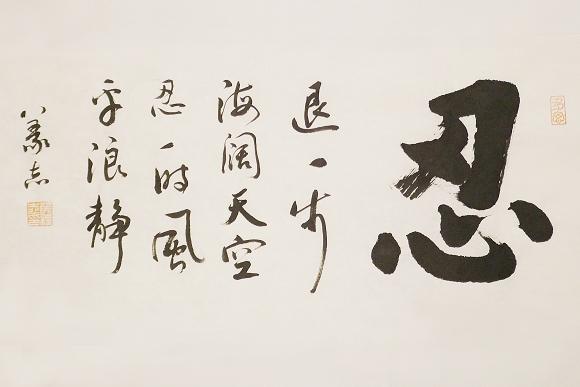 忍
退一步
海阔天空
忍一时风
平浪静